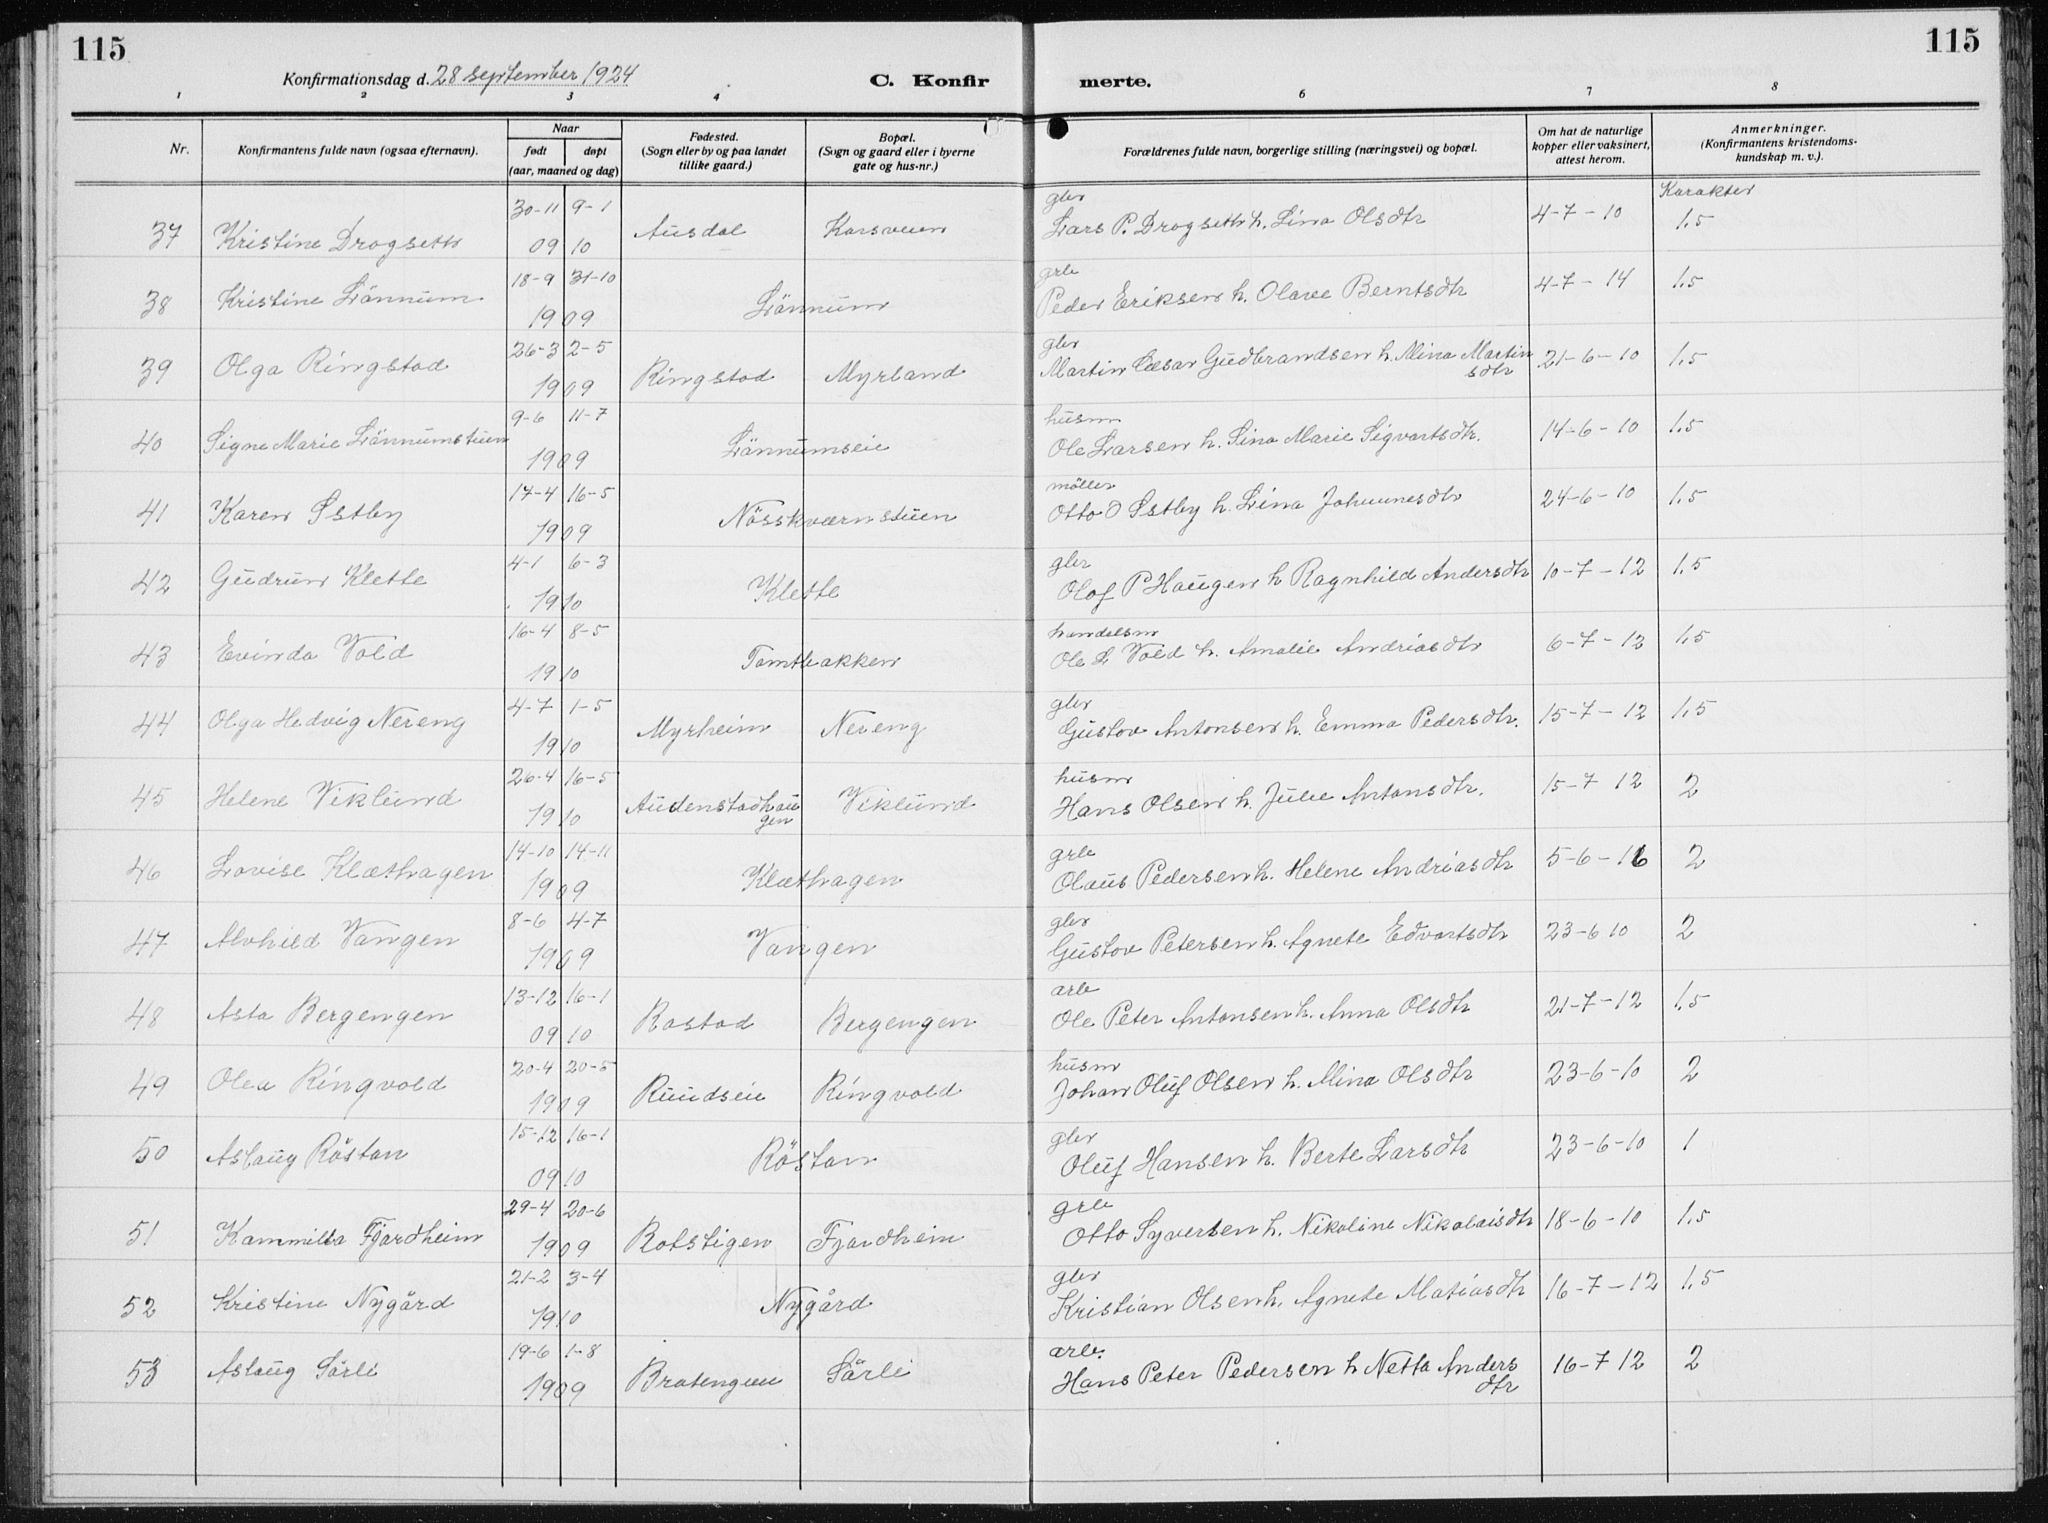 115
115
Konfirmationsdag d. 28 september 1924
C. Konfir merte.
1 2 3 4 6 7 8
Nr. Konfirmantens fulde navn (ogsaa efternavn). Naar født døpt (aar, maaned og dag) Fødested. (Sogn eller by og paa landet tillike gaard.) Bopæl. (Sogn og gaard eller i byerne gate og hus-nr.) Forældrenes fulde navn, borgerlige stilling (næringsvei) og bopæl. Om hat de naturlige kopper eller vaksinert, attest herom. Anmerkninger. (Konfirmantens kristendoms-kundskap m. v.).
Karakter
37 Kristine Drogseth 30-11 09 9-1 10 Ausdal Korsveien gbr Lars P. Drogseth h. Lina Olsdtr 4-7-10 1.5
38 Kristine Lönnum 18-9 31-10 1909 Lönnum grbr Peder Eriksen h. Olave Berntsdtr 4-7-14 1.5
39 Olga Ringstad 26-3 2-5 1909 Ringstad Myrland gbr Martin Cæsar Gudbrandsen h. Mina Martin sdtr 21-6-10 1.5
40 Signe Marie Lönnumstuen 9-6 11-7 1909 Lönnumseie husm Ole Larsen h. Lina Marie Sigvartsdtr. 14-6-10 1.5
41 Karen Østby 17-4 16-5 1909 Nösskværnstuen möller Otto O Østby h. Lina Johannesdtr 24-6-10 1.5
42 Gudrun Klette 4-1 6-3 1910 Klette gbr Olaf P Haugen h Ragnhild Andersdtr 10-7-12 1.5
43 Evinda Vold 16-4 8-5 1910 Tomtbakken handelsm Ole L Vold h. Amalie Andriasdtr 6-7-12 1.5
44 Olga Hedvig Nereng 4-7 1-5 1910 Myrheim Nereng gbr Gustav Antonsen h. Emma Pedersdtr. 15-7-12 1.5
45 Helene Viklund 26-4 16-5 1910 Audenstadhaugen Viklund husm Hans Olsen h. Julie Antonsdtr. 15-7 12 2
46 Lovise Klæthagen 14-10 14-11 1909 Klæthagen grbr Olaus Pedersen h. Helene Andriasdtr 5-6-16 2
47 Alvhild Vangen 8-6 4-7 1909 Vangen gbr Gustav Petersen h. Agnete Edvartsdtr 23-6 10 2
48 Asta Bergengen 13-12 09 16-1 10 Rostad Bergengen arb Ole Peter Antonsen h. Anna Olsdtr 21-7-12 1.5
49 Olea Ringvold 20-4 20-5 1909 Ruudseie Ringvold husm Johan Oluf Olsen h. Mina Olsdtr 23-6-10 2
50 Aslaug Röstan 15-12 09 16-1 10 Röstan gbr Oluf Hansen h. Berte Larsdtr 23-6-10 1
51 Kammilla Fjardheim 29-4 20-6 1909 Rotstigen Fjardheim grbr Otto Syversen h. Nikoline Nikolaisdtr 18-6-10 1.5
52 Kristine Nygård 21-2 3-4 1910 Nygård gbr Kristian Olsen h. Agnete Matiasdtr 16-7-12 1.5
53 Aslaug Sörli 19-6 1-8 1909 Bratengen Sörli arb. Hans Peter Pedersen h Netta Anders dtr 16-7 12 2